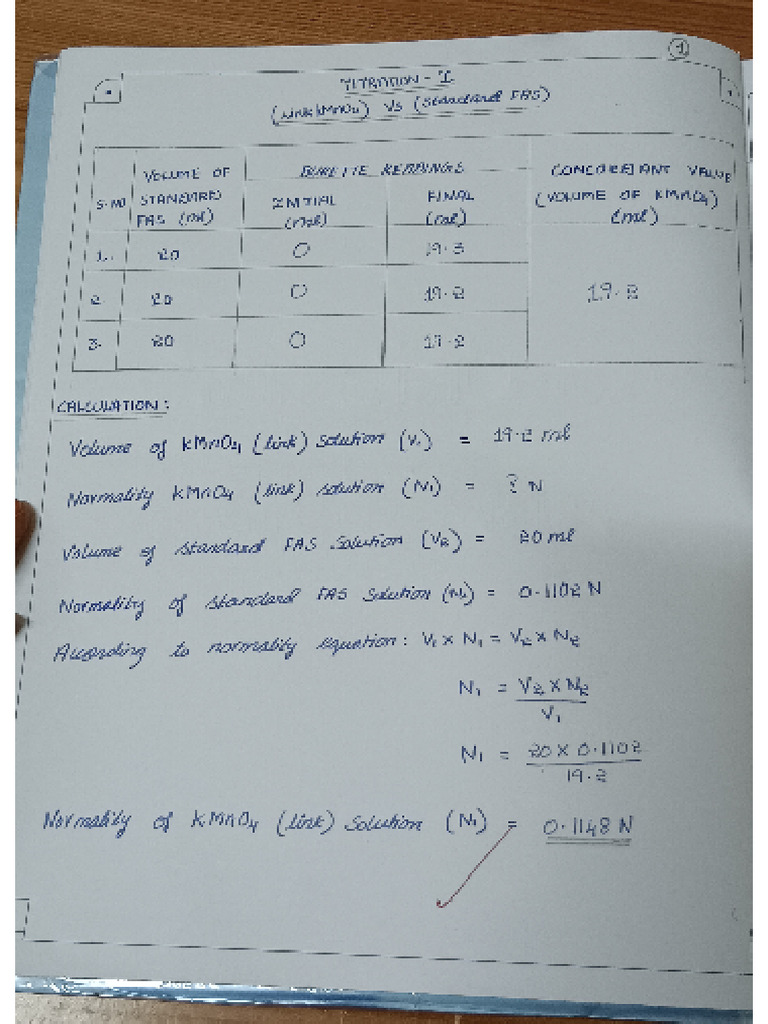 1
TITRATION - I
(LINK KMnO4) VS (Standard FAS)
S.NO | VOLUME OF STANDARD FAS (ml) | BURETTE READINGS | CONCORDANT VALUE (VOLUME OF KMnO4) (ml)
INITIAL (ml) | FINAL (ml)
1. | 20 | 0 | 19.3
2. | 20 | 0 | 19.2 | 19.2
3. | 20 | 0 | 19.2
CALCULATION:
Volume of KMnO4 (link) solution (V1) = 19.2 ml
Normality KMnO4 (link) solution (N1) = ? N
Volume of standard FAS solution (V2) = 20 ml
Normality of standard FAS solution (N2) = 0.1102 N
According to normality equation: V1 x N1 = V2 x N2
N1 = V2 x N2 / V1
N1 = 20 x 0.1102 / 19.2
Normality of KMnO4 (link) solution (N1) = 0.1148 N